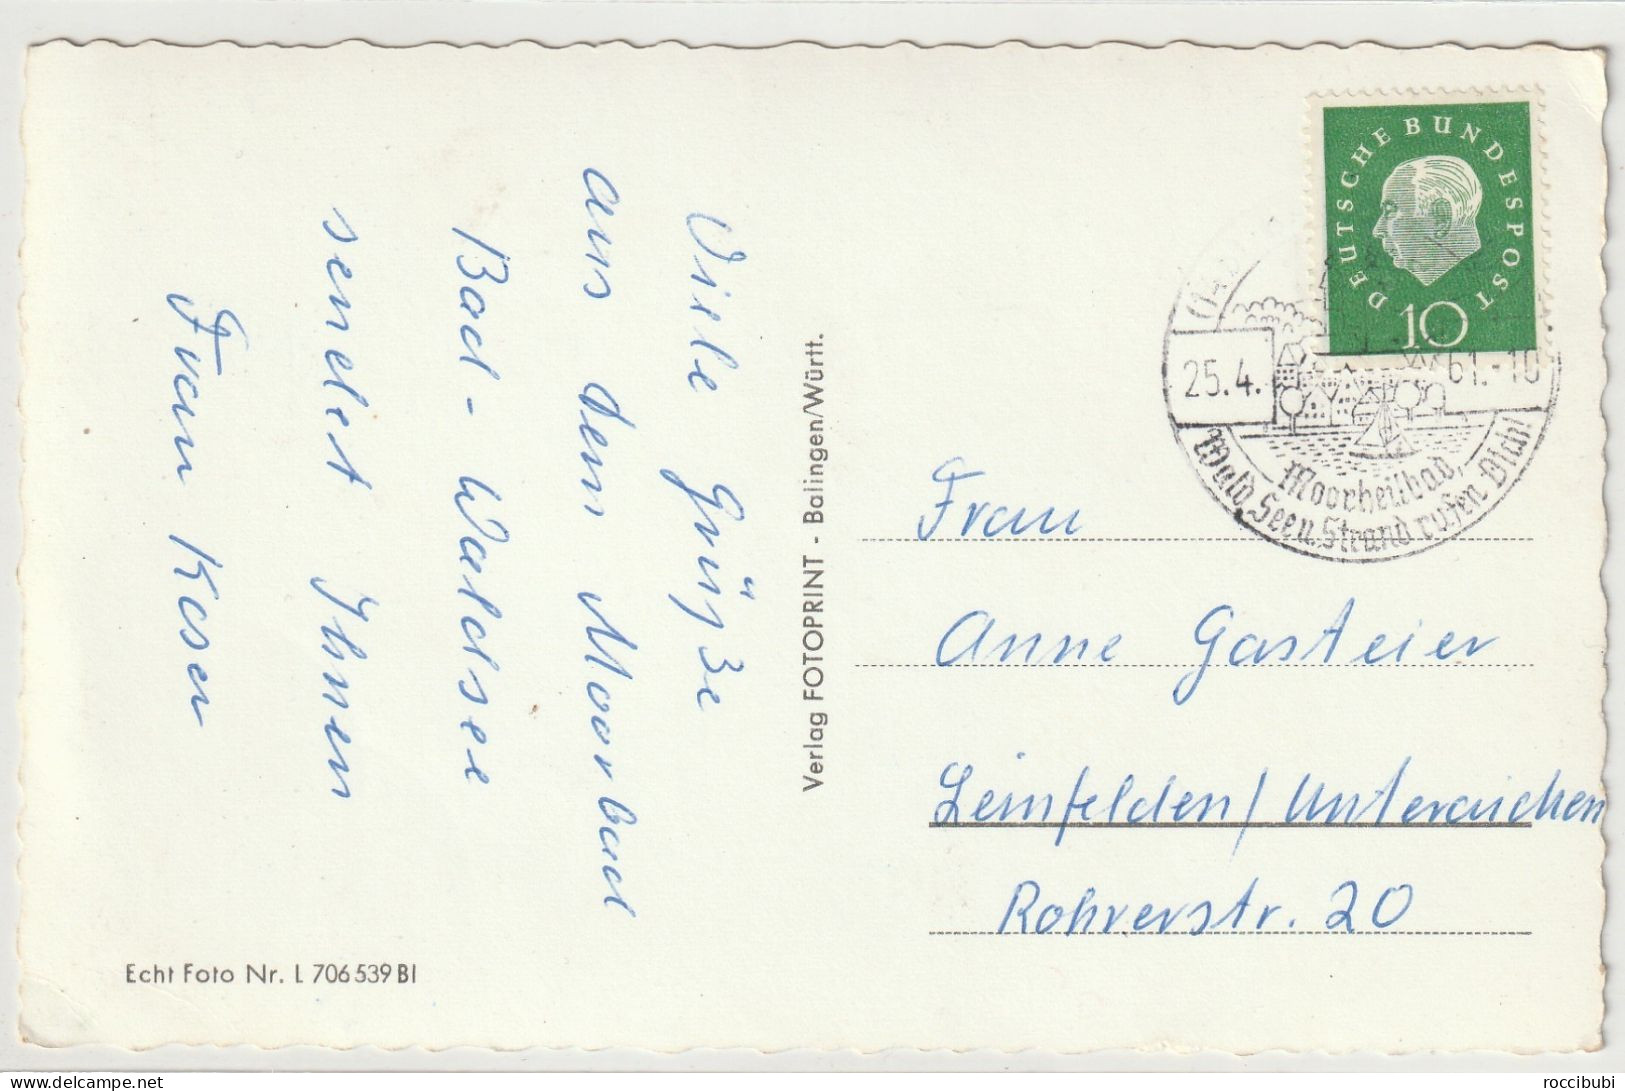 Viele Grüße
aus dem Moorbad
Bad-Waldsee
sendet Ihnen
Frau Kaser
Echt Foto Nr. L 706 539 Bl
Verlag FOTOPRINT - Balingen/Württ.
DEUTSCHE BUNDESPOST
10
25.4. 61.-10
Moorheilbad,
Wald, See u. Strand rufen Dich!
Frau
Anne Gasteier
Leinfelden/Unteraichen
Rohrerstr. 20
roccibubi
delcampe.net